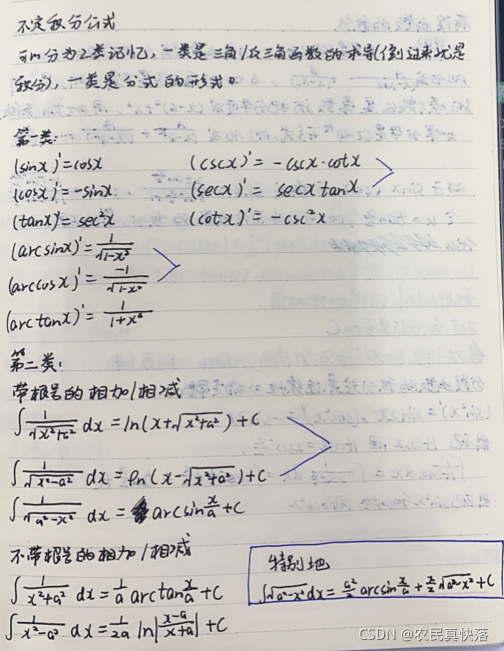 不定积分公式
可以分为2类记忆,一类是三角/反三角函数的求导(倒过来就是
积分),一类是分式的形式。
第一类:
(sinx)'=cosx (cscx)'= -cscx·cotx
(cosx)'=-sinx (secx)'= secxtanx
(tanx)'=sec²x (cotx)'=-csc²x
(arcsinx)'=1/√(1-x²)
(arccosx)'=-1/√(1-x²)
(arctanx)'=1/(1+x²)
第二类:
带根号的相加/相减
∫1/√(x²+a²) dx=ln(x+√(x²+a²))+C
∫1/√(x²-a²) dx=ln(x-√(x²+a²))+C
∫1/√(a²-x²) dx=arcsin x/a+C
不带根号的相加/相减
特别地
∫√(a²-x²)dx=a²/2 arcsin x/a+x/2 √(a²-x²)+C
∫1/(x²+a²) dx=1/a arctan x/a+C
∫1/(x²-a²) dx=1/2a ln|(x-a)/(x+a)|+C
CSDN @农民真快落